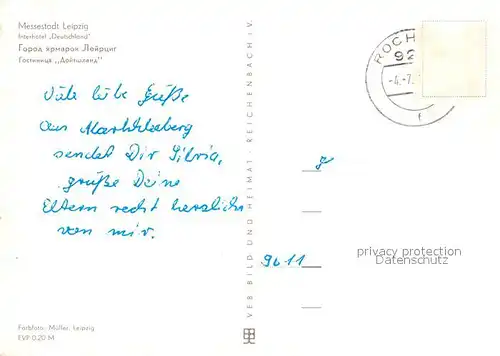 Messestadt Leipzig
Interhotel „Deutschland"
Город ярмарок Лейпциг
Гостиница „Дойтшланд"
Viele liebe Grüße
aus Markkleeberg
sendet Dir Silvia,
grüße Deine
Eltern recht herzlich
von mir.
Farbfoto: Müller, Leipzig
EVP 0.20 M
VEB BILD UND HEIMAT · REICHENBACH i. V.
ROCH
92
-4.-7.
f
9611
privacy protection
Datenschutz